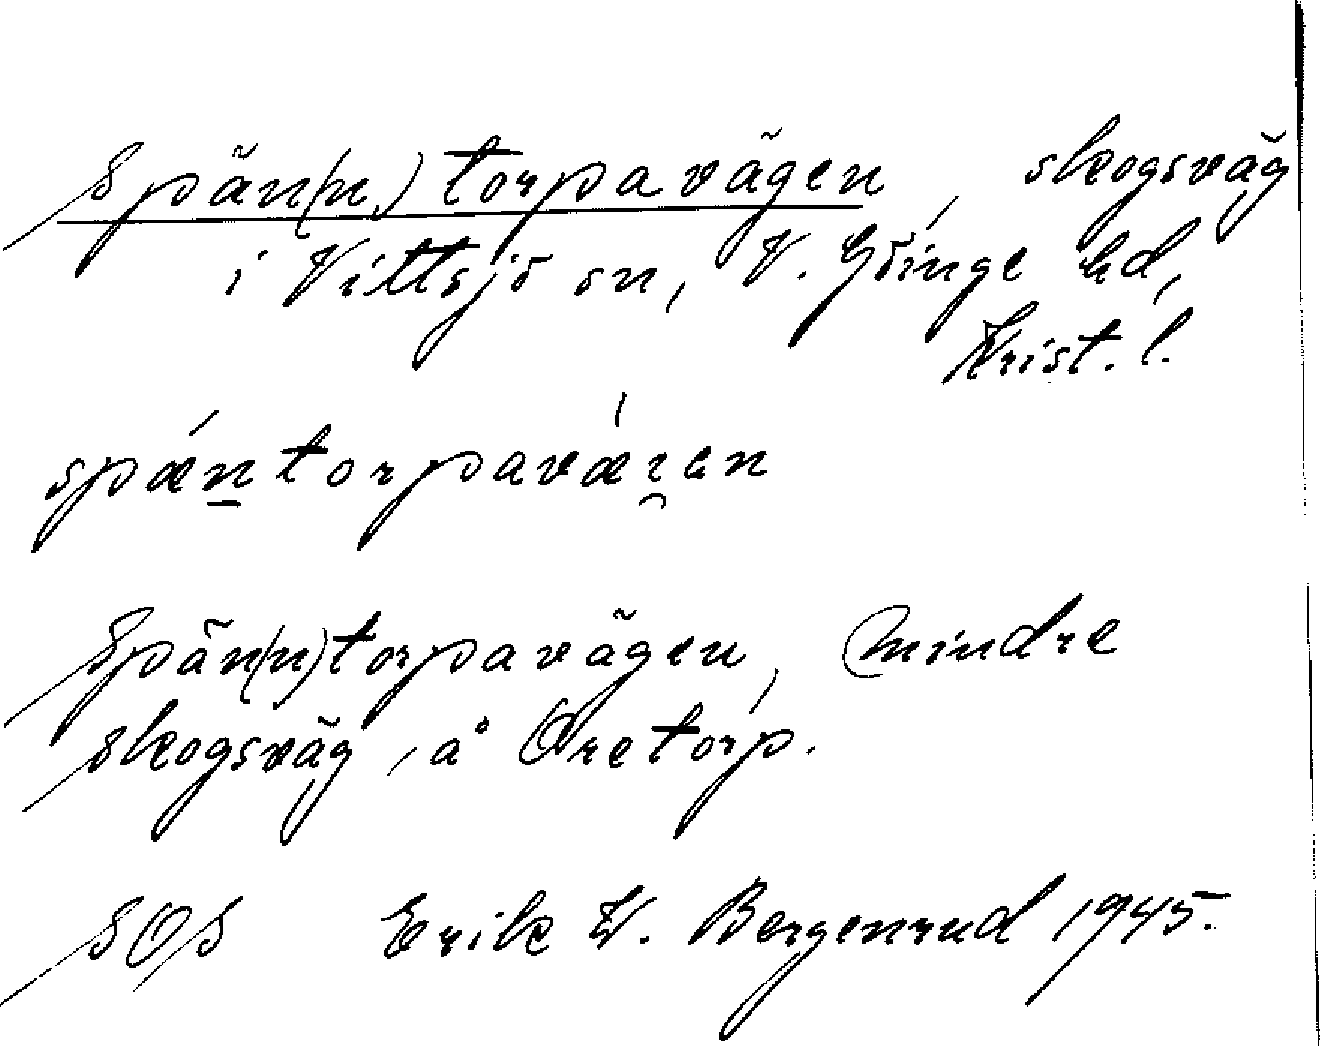 Spän(n)torpavägen, skogsväg
i Vittsjö sn, V. Göinge hd,
Krist. l.
spǽntorpavǽɪ̯en
Spän(n)torpavägen, mindre
skogsväg, å Oretorp.
SOS Erik W. Bergenrud 1945.